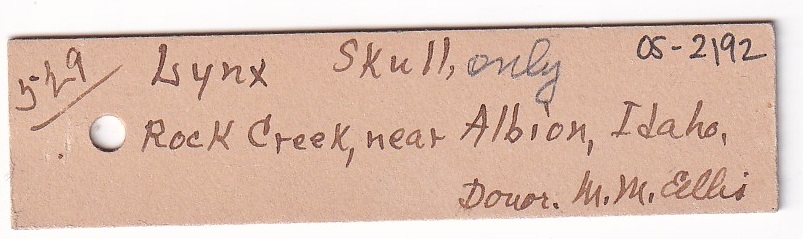 529 Lynx Skull, only OS-2192
Rock Creek, near Albion, Idaho.
Donor. M. M. Ellis